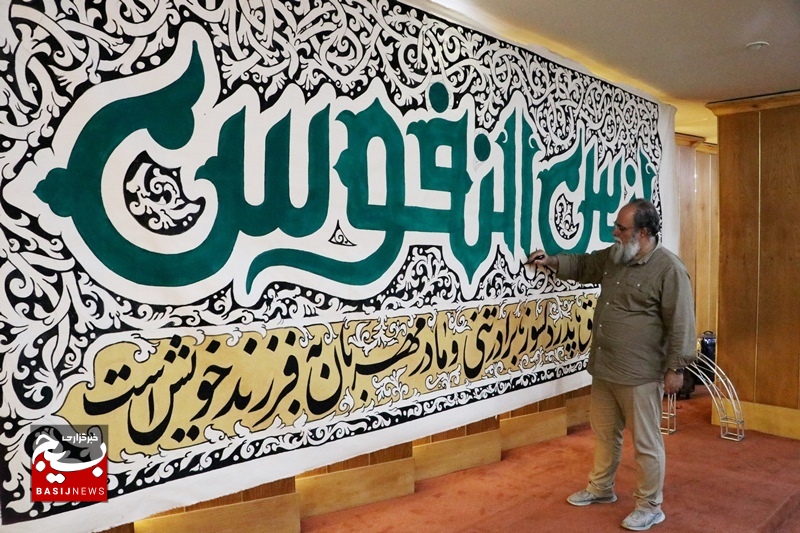 انیس النفوس
پدر دلسوز برادر تنی و مادر مهربان به فرزند خویش است
خبرگزاری
بسیج
BASIJNEWS